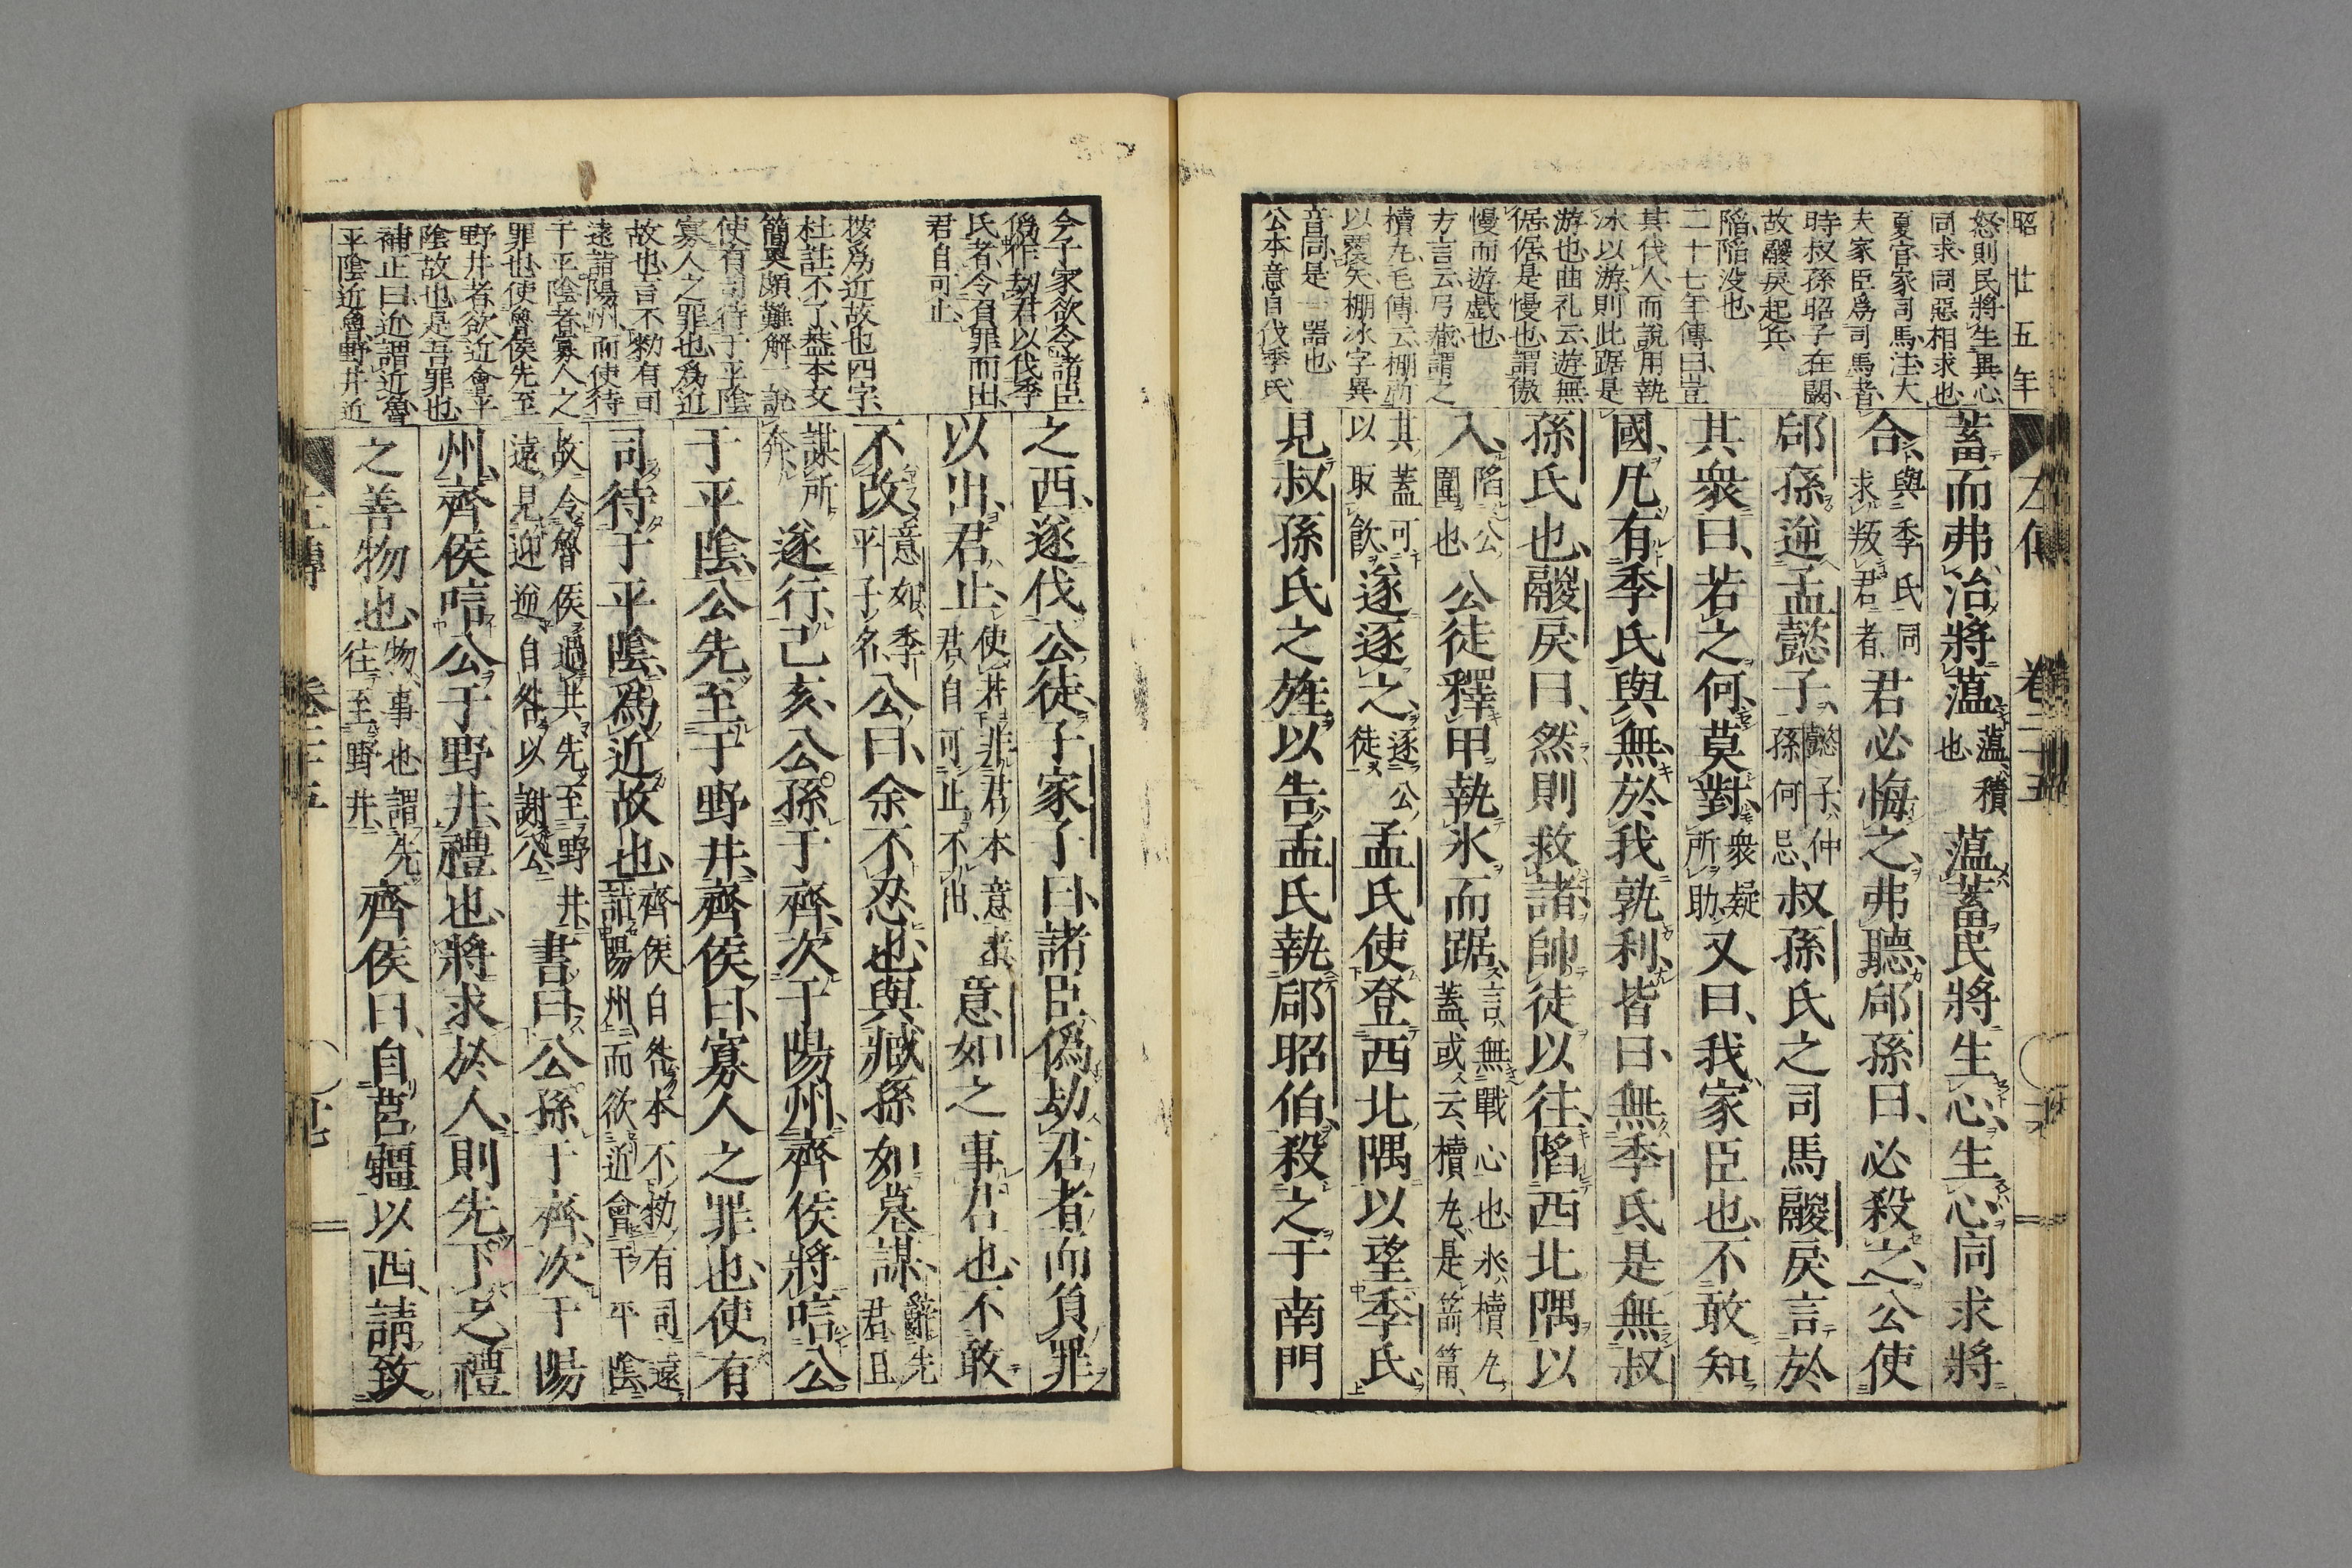 昭廿五年
怒則民將生異心
同求同惡相求也
夏官家司馬注大
夫家臣爲司馬者
時叔孫昭子在闞
故鬷戾起兵
陷陷没也
二十七年傳曰豈
其伐人而說用執
冰以游則此踞是
游也曲礼云遊無
倨倨是慢也謂傲
慢而遊戲也
方言云弓藏謂之
櫝丸毛傳云棚所
以覆矢棚冰字異
音同是一器也
公本意自伐季氏
左傳 卷二十五
蓄而弗治將薀薀積也薀蓄民將生心生心同求將
合與季氏同求叛君者君必悔之弗聽郈孫曰必殺之公使
郈孫逆孟懿子懿子仲孫何忌叔孫氏之司馬鬷戾言於
其衆曰若之何莫對衆疑所助又曰我家臣也不敢知
國凡有季氏與無於我孰利皆曰無季氏是無叔
孫氏也鬷戾曰然則救諸帥徒以往陷西北隅以
入陷公圍也公徒釋甲執氷而踞言無戰心也氷櫝丸蓋或云櫝丸是箭筩
其蓋可以取飲遂逐之逐公徒孟氏使登西北隅以望季氏
見叔孫氏之旌以告孟氏執郈昭伯殺之于南門
今子家欲令諸臣
僞作劫君以伐季
氏者令負罪而出
君自可止
按爲近故也四字
杜註不了蓋本文
簡奧頗難解一說
使有司待于平陰
寡人之罪也爲近
故也言不勑有司
遠詣陽州而使待
于平陰者寡人之
罪也使魯侯先至
野井者欲近會平
陰故也是吾罪也
補正曰近謂近魯
平陰近魯野井近
之西遂伐公徒子家子曰諸臣僞劫君者而負罪
以出君止使若非君本意者君自可止不出意如之事君也不敢
不改意如季平子名公曰余不忍也與臧孫如墓謀辭先君且
謀所奔遂行己亥公孫于齊次于陽州齊侯將唁公
于平陰公先至于野井齊侯曰寡人之罪也使有
司待于平陰爲近故也齊侯自咎本不勑有司遠詣陽州而欲近會于平陰
故令魯侯過共先至野井遠見迎逆自咎以謝公書曰公孫于齊次于陽
州齊侯唁公于野井禮也將求於人則先下之禮
之善物也物事也謂先往至野井齊侯曰自莒疆以西請致
左傳 卷二十五 廿七